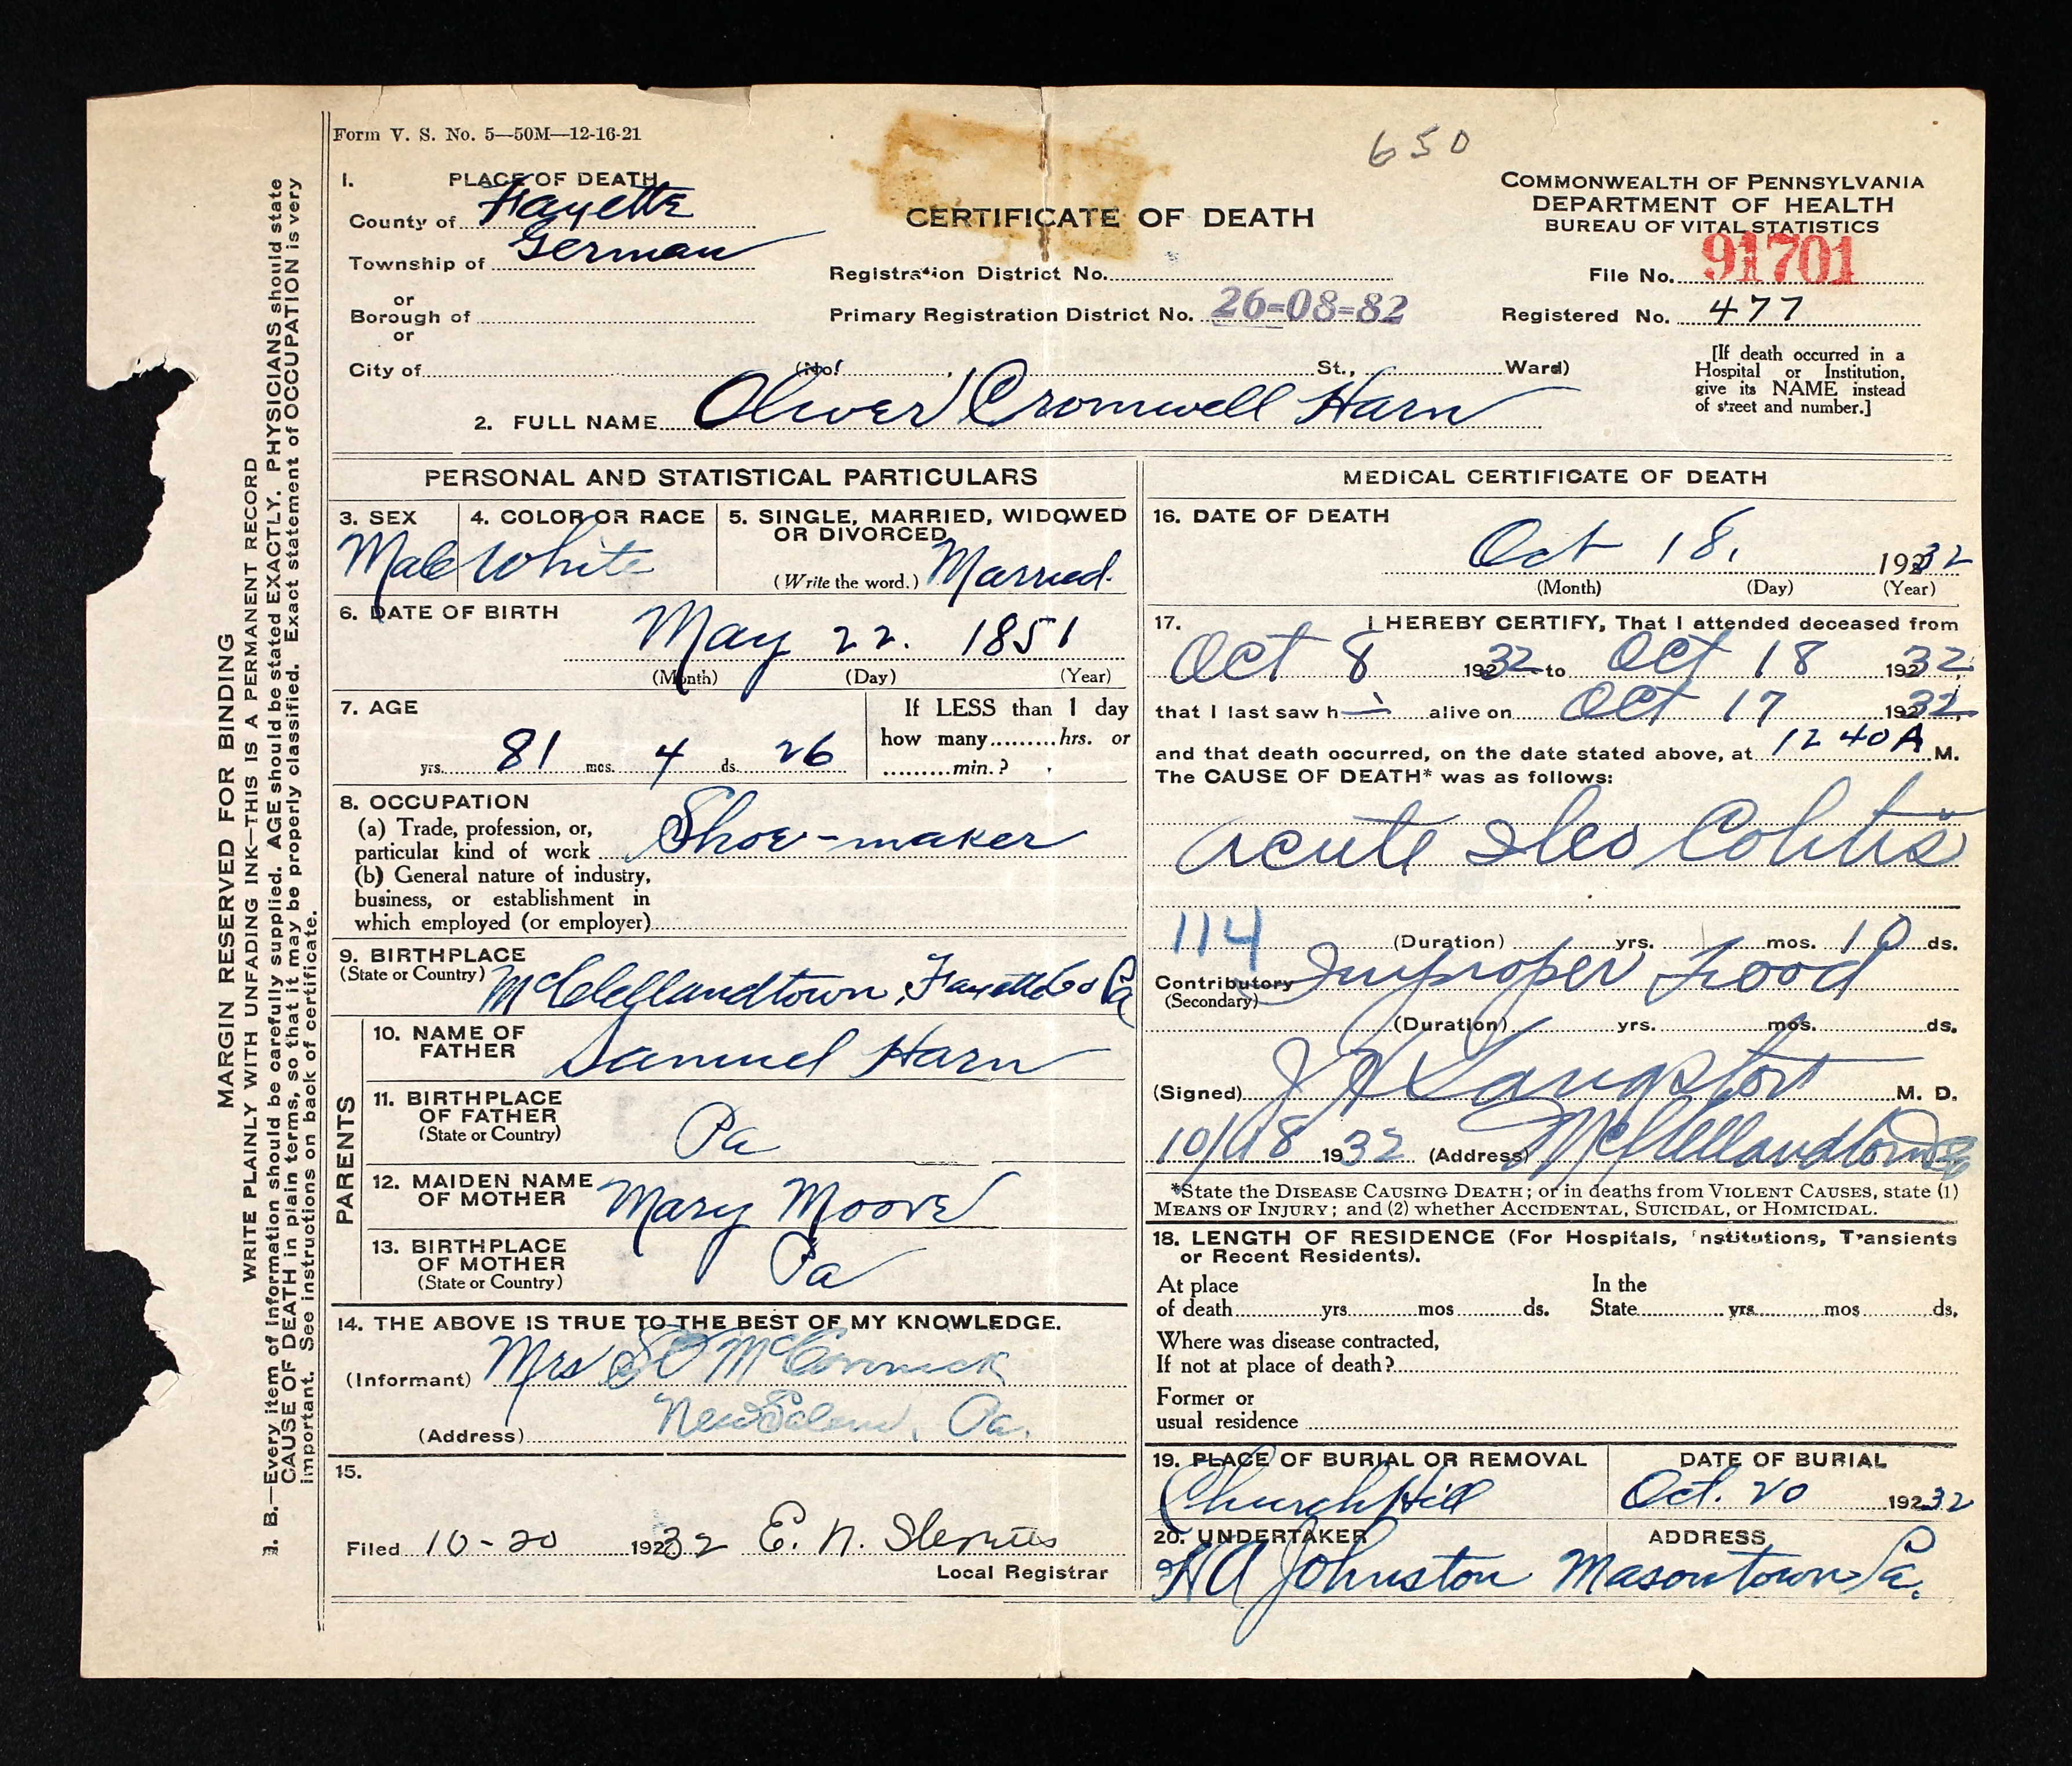 Form V. S. No. 5—50M—12-16-21
650
1. PLACE OF DEATH
County of Fayette
Township of German
or
Borough of
or
City of
CERTIFICATE OF DEATH
Registration District No.
Primary Registration District No. 26-08-82
(No. , St., Ward)
COMMONWEALTH OF PENNSYLVANIA
DEPARTMENT OF HEALTH
BUREAU OF VITAL STATISTICS
File No. 91701
Registered No. 477
[If death occurred in a
Hospital or Institution,
give its NAME instead
of street and number.]
2. FULL NAME Oliver Cromwell Harn
MARGIN RESERVED FOR BINDING
WRITE PLAINLY WITH UNFADING INK—THIS IS A PERMANENT RECORD
N. B.—Every item of information should be carefully supplied. AGE should be stated EXACTLY. PHYSICIANS should state
CAUSE OF DEATH in plain terms, so that it may be properly classified. Exact statement of OCCUPATION is very
important. See instructions on back of certificate.
PERSONAL AND STATISTICAL PARTICULARS
3. SEX
Male
4. COLOR OR RACE
White
5. SINGLE, MARRIED, WIDOWED
OR DIVORCED
(Write the word.) Married
6. DATE OF BIRTH
May 22. 1851
(Month) (Day) (Year)
7. AGE
yrs. 81 mos. 4 ds. 26
If LESS than 1 day
how many.........hrs. or
.........min.?
8. OCCUPATION
(a) Trade, profession, or,
particular kind of work Shoe-maker
(b) General nature of industry,
business, or establishment in
which employed (or employer)
9. BIRTHPLACE
(State or Country) McClellandtown, Fayette Co Pa
PARENTS
10. NAME OF
FATHER
Samuel Harn
11. BIRTHPLACE
OF FATHER
(State or Country)
Pa
12. MAIDEN NAME
OF MOTHER
Mary Moore
13. BIRTHPLACE
OF MOTHER
(State or Country)
Pa
14. THE ABOVE IS TRUE TO THE BEST OF MY KNOWLEDGE.
(Informant) Mrs McCormick
(Address) New Salem, Pa.
15.
Filed 10-20 192 32 E. N.
Local Registrar
MEDICAL CERTIFICATE OF DEATH
16. DATE OF DEATH
Oct 18, 192 32
(Month) (Day) (Year)
17. I HEREBY CERTIFY, That I attended deceased from
Oct 8 192 32 to Oct 18 192 32,
that I last saw h i alive on Oct 17 192 32,
and that death occurred, on the date stated above, at 12 40 A M.
The CAUSE OF DEATH* was as follows:
Acute Ileo Colitis
114
(Duration) yrs. mos. 10 ds.
Contributory Improper Food
(Secondary)
(Duration) yrs. mos. ds.
(Signed) J H Langston M. D.
10/18 1932 (Address) McClellandtown
*State the DISEASE CAUSING DEATH; or in deaths from VIOLENT CAUSES, state (1)
MEANS OF INJURY; and (2) whether ACCIDENTAL, SUICIDAL, or HOMICIDAL.
18. LENGTH OF RESIDENCE (For Hospitals, Institutions, Transients
or Recent Residents).
At place
of death yrs mos ds.
In the
State yrs mos ds.
Where was disease contracted,
If not at place of death?
Former or
usual residence
19. PLACE OF BURIAL OR REMOVAL
Church Hill
DATE OF BURIAL
Oct. 20 192 32
20. UNDERTAKER
HA Johnston
ADDRESS
Masontown Pa.